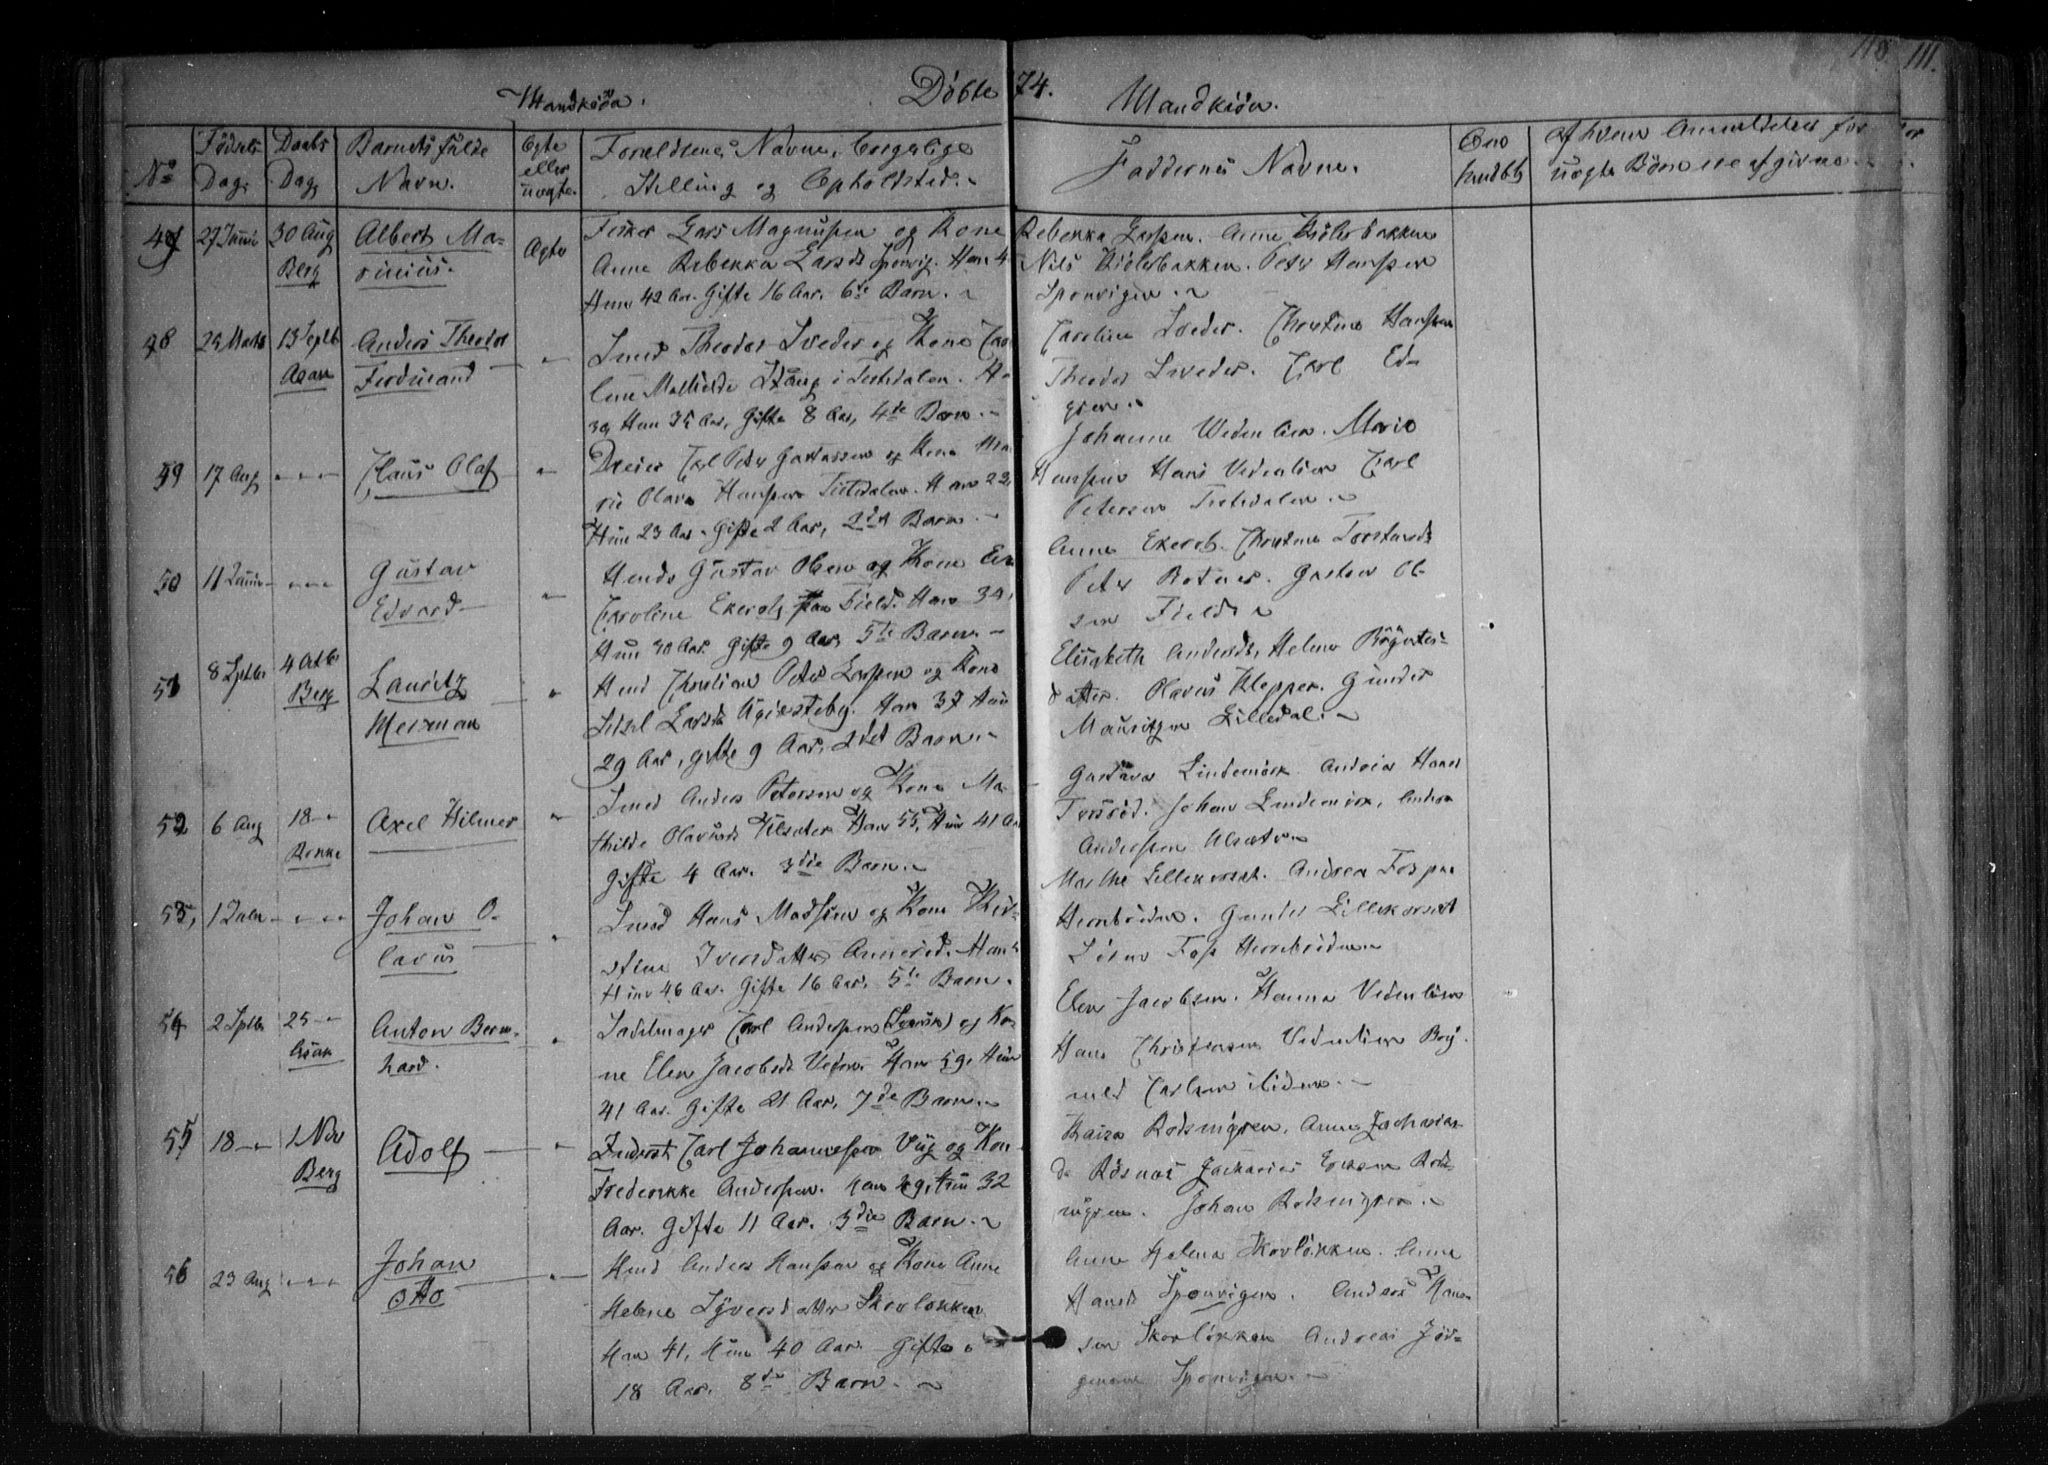 Mandkiøn. Døbte 74. Mandkiøn. 110 111.
No Fødsels Dag. Daabs Dag. Barnets fulde Navn. Ægte eller uægte. Forældrenes Navne, borgerlige Stilling og Opholdsted. Faddernes Navne. af hvem Anmeldelse for uægte Børn ere afgivne
47 27 Juni 30 Aug Berg Albert Ma-
rinius. Ægte
Fisker Lars Magnussen og Kone
Anne Rebekka Larsd. Sponvig. Han 4
Hun 42 Aar. Gifte 16 Aar. 6te Barn.
Rebekka Larsen. Anne
Nils Peter Hansen
Sponvigen.
48 29 Marts 13 Septb Asak Anders Theodor
Ferdinand
Smed Theodor Sveder og Kone Caro
line Mathilde i Tistedalen. Ha
39 Hun 35 Aar, Gifte 8 Aar, 4de Barn.
Caroline Sveder. Christine Hansen
Theodor Sveder. Carl Ed-
gren.
49 17 Aug Claus Olaf
Dreier Carl Peter Gustavsen og Kone Ma
rie Olava Hansen Tistedalen. Han 22,
Hun 23 Aar. Gifte 2 Aar, 2det Barn.
Johanne Vedenlien. Marie
Hansen Hans Vedenlien Carl
Petersen Tistedalen.
50 11 Juni Gustav
Edvard
Gustav Olsen og Kone
Caroline Ekeroth Field. Han 34,
Hun 30 Aar. Gifte 9 Aar, 5te Barn.
Anna Ekeroth. Christine Torstensd.
Peter Botner. Gustav Ol-
sen Field.
51 8 Septbr 4 Octbr Berg Lauritz
Herman
Hmd Christian Peter Larsen og Kone
Larsd. Han 37 Hun
29 Aar, gifte 9 Aar, 2det Barn.
Elisabeth Andersd. Helene
datter. Olavus Klepper. Gunder
Mauritzen Lilledal.
52 6 Aug 18 Rokke Axel Hilmer
Smed Anders Petersen og Kone Ma-
thilde Olavusd. Ulsæter Han 55, Hun 41 Aar
Gifte 4 Aar. 3die Barn.
Gustava Lindemark. Andrea Hans
Torsrød. Johan Lindemark. Anders
Andersen Ulsæter.
53, 1 Juli Johan O-
lavus
Smed Hans Madsen og Kone Chri-
stine Iversdatter Annerød. Han
Hun 46 Aar. Gifte 16 Aar, 5te Barn.
Marthe Lillekorset. Andrea Fos paa
Herrebrøden. Gunder Lillekorset
Søren Fos Herrebrøden.
54 2 Sptbr 25 Asak Anton Bern-
hard.
Sadelmager Carl Andersen (Svensk) og Ko-
ne Elen Jacobsd. Veden. Han 59, Hun
41 Aar. Gifte 21 Aar, 7de Barn.
Elen Jacobsen. Hanna Vedenlien
Hans Christensen Vedenlien
Carlsen
55 18 1 Nov Berg Adolf
Inderst. Carl Johannesen Viig og Kon
Frederikke Andersen. Han 29, Hun 32
Aar. Gifte 11 Aar. 3die Barn.
Kaisa Rødsmyren, Anne Zacharias-
da Røsnæs Zacharias
myren. Johan Rødsmyren.
56 23 Aug Johan
Otto
Hmd Anders Hansen og Kone Anne
Helene Syversdatter Skovløkken
Han 41, Hun 40 Aar. Gifte
18 Aar. 8de Barn.
Anne Helene Skovløkken. Anne
Hansd. Sponvigen. Anders Han-
sen Skovløkken Andreas Jør-
gensen Sponvigen.